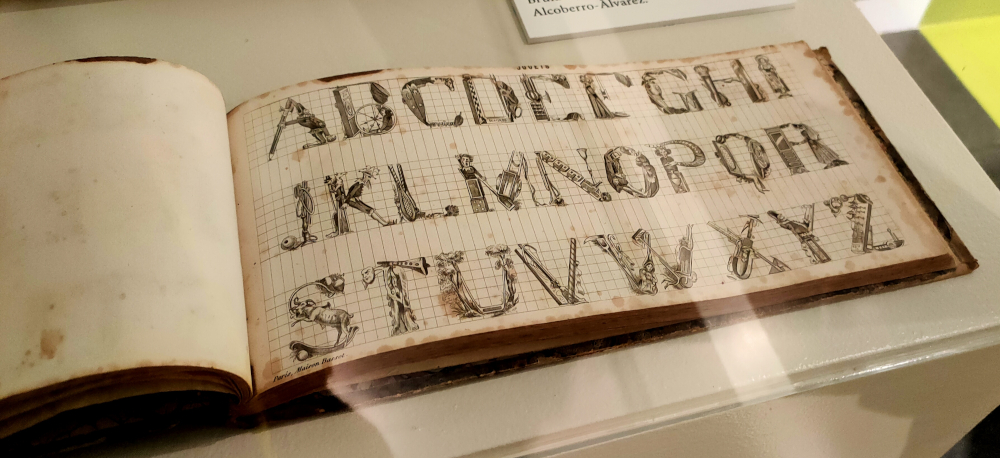 Alcoberro-Álvarez.
JOUETS
A B C D E F G H I
J K L M N O P Q R
S T U V W X Y Z
Paris, Maison Basset